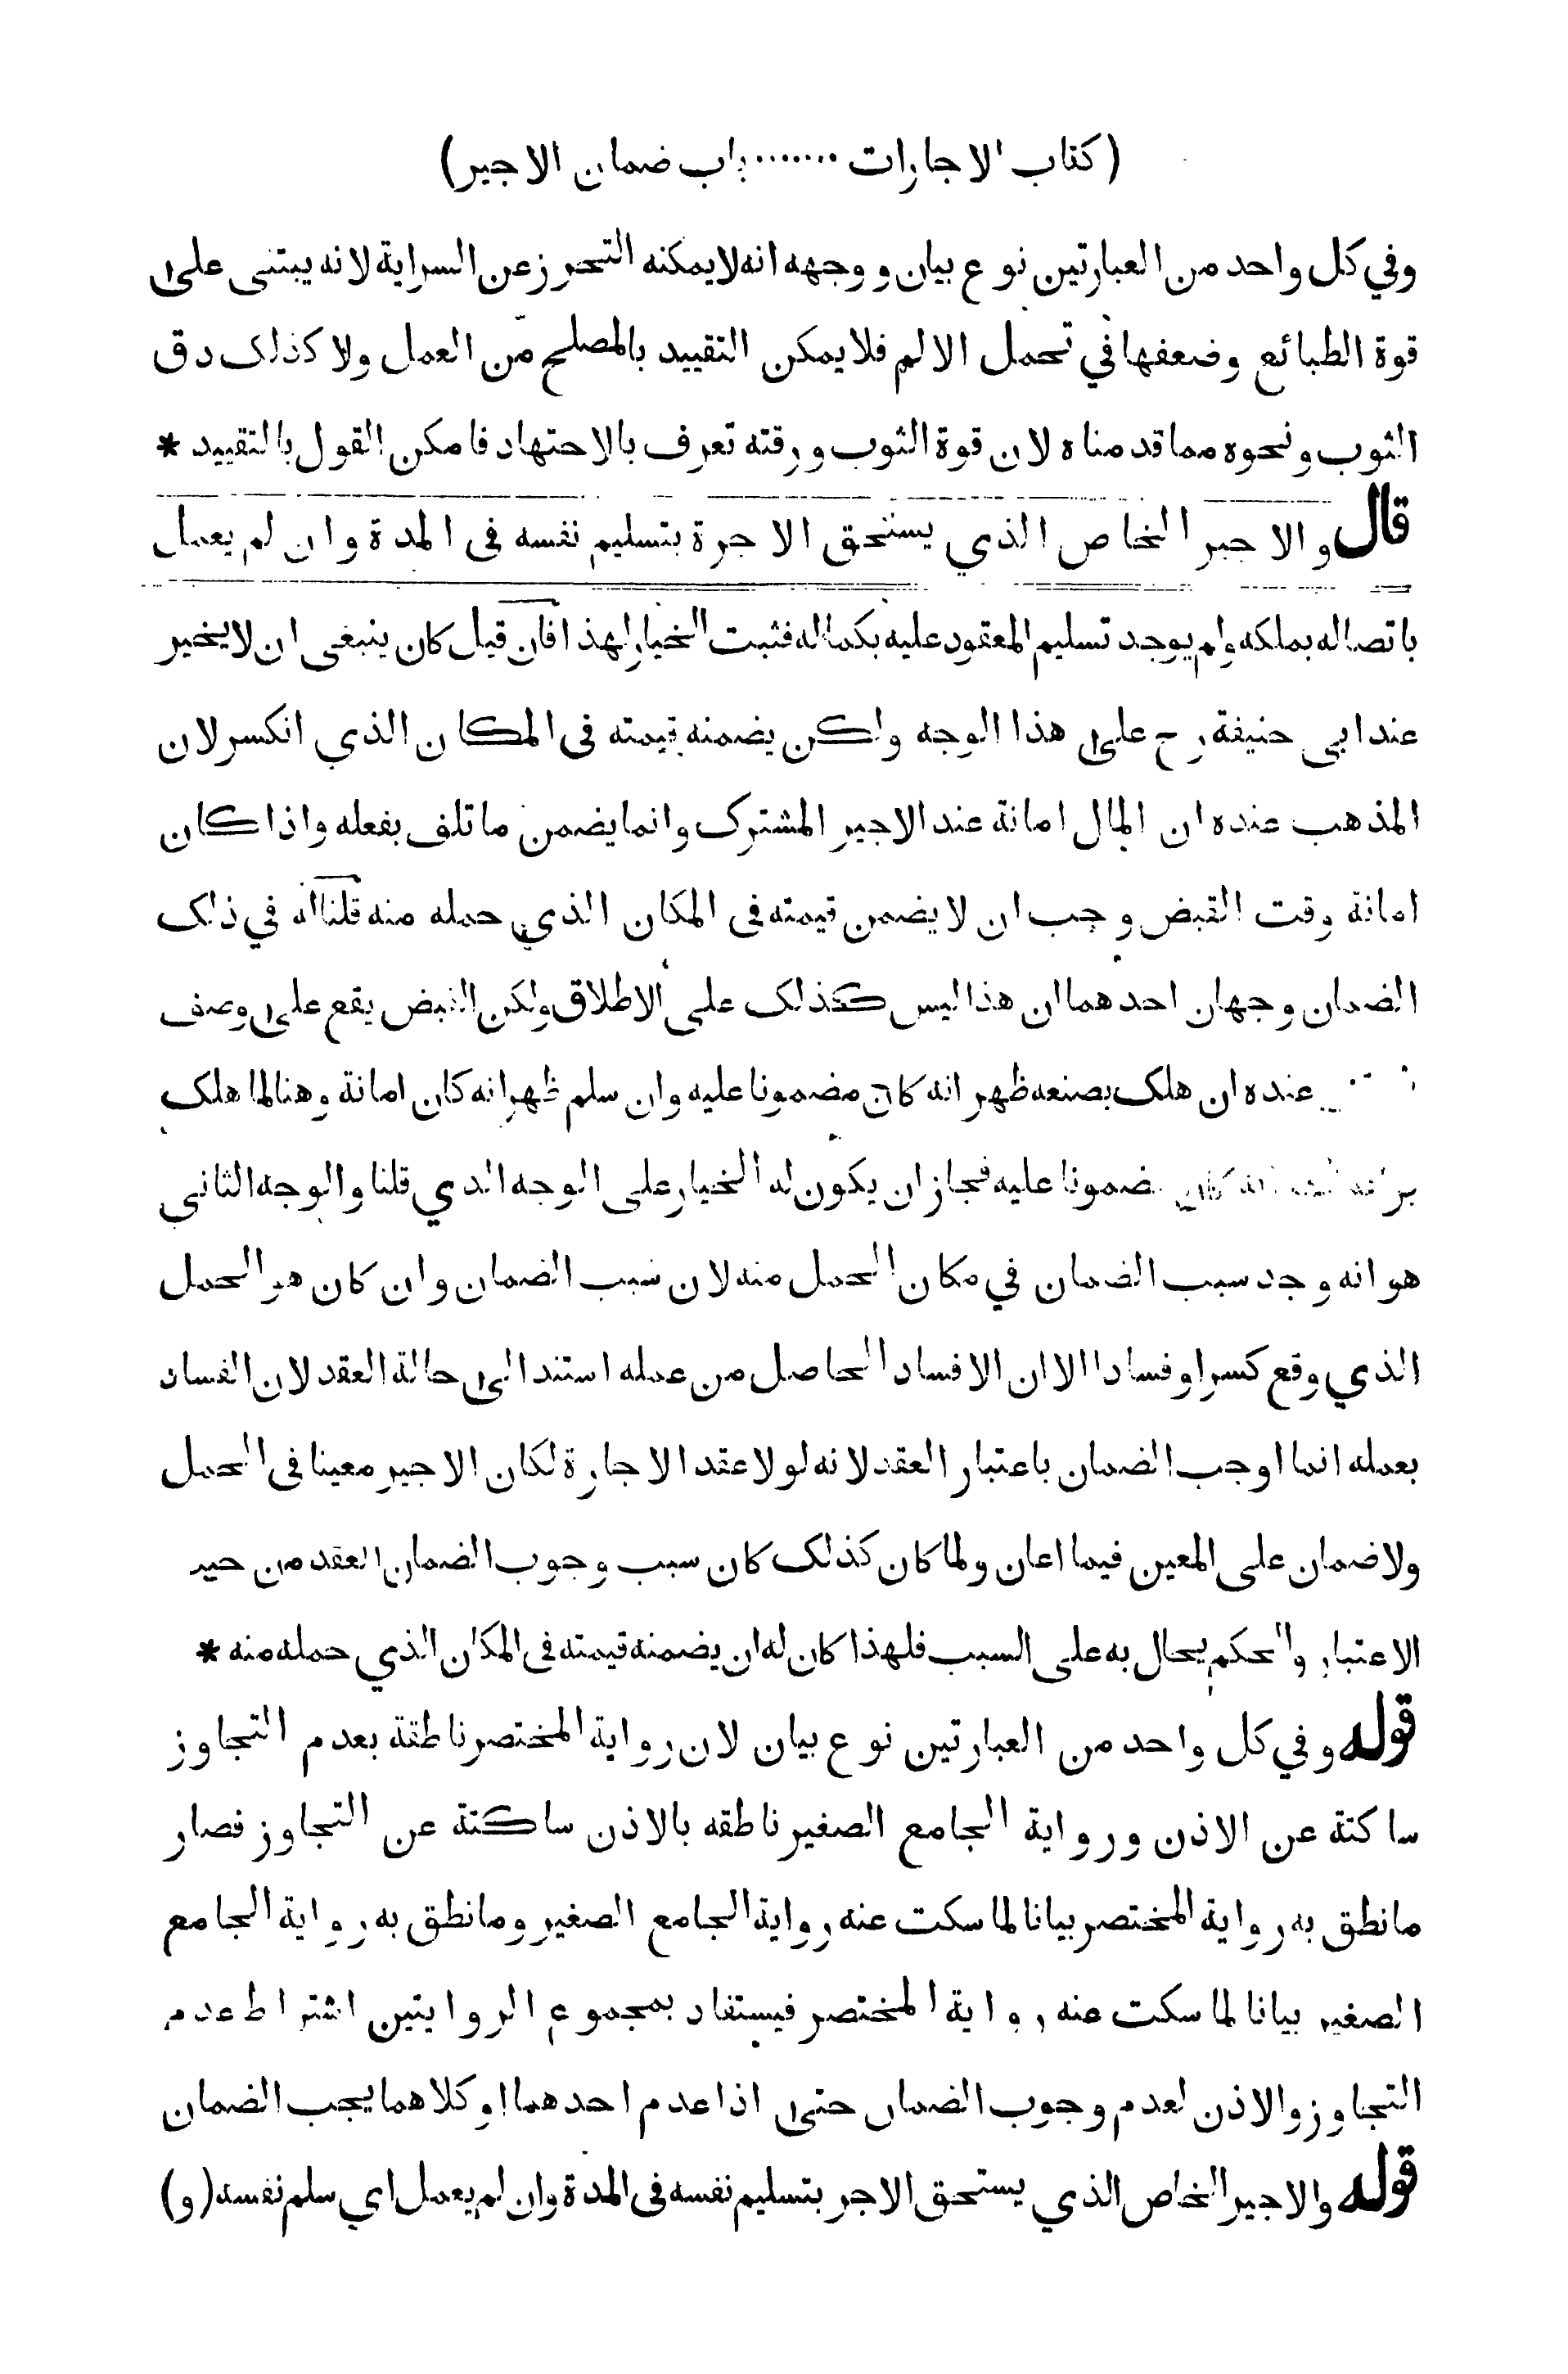 (كتاب الاجارات ······· باب ضمان الاجير)
وفي كل واحد من العبارتين نوع بيان ووجهه انه لا يمكنه التحرز عن السراية لانه يبتنى على
قوة الطبائع وضعفها في تحمل الالم فلا يمكن التقييد بالمصلح من العمل ولا كذلك دق
الثوب ونحوه مما قدمناه لان قوة الثوب ورقته تعرف بالاجتهاد فامكن القول بالتقييد *
قال والاجير الخاص الذي يستحق الاجرة بتسليم نفسه فى المدة وان لم يعمل
باتصاله بملكه ولم يوجد تسليم المعقود عليه بكماله فثبت الخيار لهذا فان قيل كان ينبغى ان لا يخير
عند ابى حنيفة رح على هذا الوجه ولكن يضمنه قيمته فى المكان الذي انكسر لان
المذهب عنده ان المال امانة عند الاجير المشترك وانما يضمن ما تلف بفعله واذا كان
امانة وقت القبض وجب ان لا يضمن قيمته فى المكان الذي حمله منه قلنا له في ذلك
الضمان وجهان احدهما ان هذا ليس كذلك على الاطلاق ولكن القبض يقع على وصف
عنده ان هلك بصنعه ظهر انه كان مضمونا عليه وان سلم ظهر انه كان امانة وهنا لما هلك
انه كان مضمونا عليه فجاز ان يكون له الخيار على الوجه الذي قلنا والوجه الثانى
هو انه وجد سبب الضمان في مكان الحمل منه لان سبب الضمان وان كان هو الحمل
الذي وقع كسرا وفسادا الا ان الافساد الحاصل من عمله استند الى حالة العقد لان الفساد
بعمله انما اوجب الضمان باعتبار العقد لانه لولا عقد الاجارة لكان الاجير معينا فى الحمل
ولا ضمان على المعين فيما اعان ولما كان كذلك كان سبب وجوب الضمان العقد من
الاعتبار والحكم يحال به على السبب فلهذا كان له ان يضمنه قيمته فى المكان الذي حمله منه *
قوله وفي كل واحد من العبارتين نوع بيان لان رواية المختصر ناطقة بعدم التجاوز
ساكتة عن الاذن ورواية الجامع الصغير ناطقه بالاذن ساكتة عن التجاوز فصار
ما نطق به رواية المختصر بيانا لما سكت عنه رواية الجامع الصغير وما نطق به رواية الجامع
الصغير بيانا لما سكت عنه رواية المختصر فيستفاد بمجموع الروايتين اشتراط عدم
التجاوز والاذن لعدم وجوب الضمان حتى اذا عدم احدهما او كلاهما يجب الضمان
قوله والاجير الخاص الذي يستحق الاجر بتسليم نفسه فى المدة وان لم يعمل اي سلم نفسه (و)